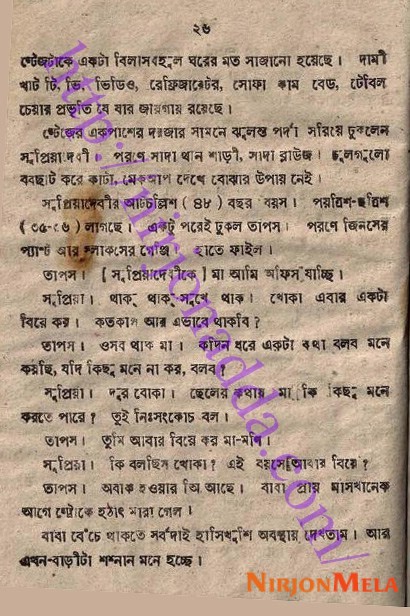 ২৬
ষ্টেজটাকে একটা বিলাসবহুল ঘরের মত সাজানো হয়েছে। দামী
খাট টি, ভি, ভিডিও, রেফ্রিজারেটর, সোফা কাম বেড, টেবিল
চেয়ার প্রভৃতি যে যার জায়গায় রয়েছে।
ষ্টেজের একপাশের দরজার সামনে ঝুলন্ত পর্দা সরিয়ে ঢুকলেন
সুপ্রিয়াদেবী। পরণে সাদা থান শাড়ী, সাদা ব্লাউজ। চুলগুলো
ববছাট করে কাটা, মেকআপ দেখে বোঝার উপায় নেই।
সুপ্রিয়াদেবীর আটচল্লিশ (৪৮) বছর বয়স। পয়ত্রিশ-ছত্রিশ
(৩৫-৩৬) লাগছে। একটু পরেই ঢুকল তাপস। পরণে জিনসের
প্যান্ট আর গেঞ্জি। হাতে ফাইল।
তাপস। [সুপ্রিয়াদেবীকে] মা আমি অফিস যাচ্ছি।
সুপ্রিয়া। থাক্ থাক্ সুখে থাক। খোকা এবার একটা
বিয়ে কর। কতকাল আর এভাবে থাকবি?
তাপস। ওসব থাক মা। কদিন ধরে একটা কথা বলব মনে
করছি, যদি কিছু মনে না কর, বলব?
সুপ্রিয়া। দূর বোকা। ছেলের কথায় মা কি কিছু মনে
করতে পারে? তুই নিঃসংকোচ বল।
তাপস। তুমি আবার বিয়ে কর মা-মণি।
সুপ্রিয়া। কি বলছিস খোকা? এই বয়সে আবার বিয়ে?
তাপস। অবাক হওয়ার কি আছে। বাবা প্রায় মাসখানেক
আগে ষ্ট্রোকে হঠাৎ মারা গেল।
বাবা বেঁচে থাকতে সর্বদাই হাসিখুশি অবস্থায় দেখতাম। আর
এখন-বাড়ীটা শ্মশান মনে হচ্ছে।
http://nirjonadda.com/
NIRJONMELA